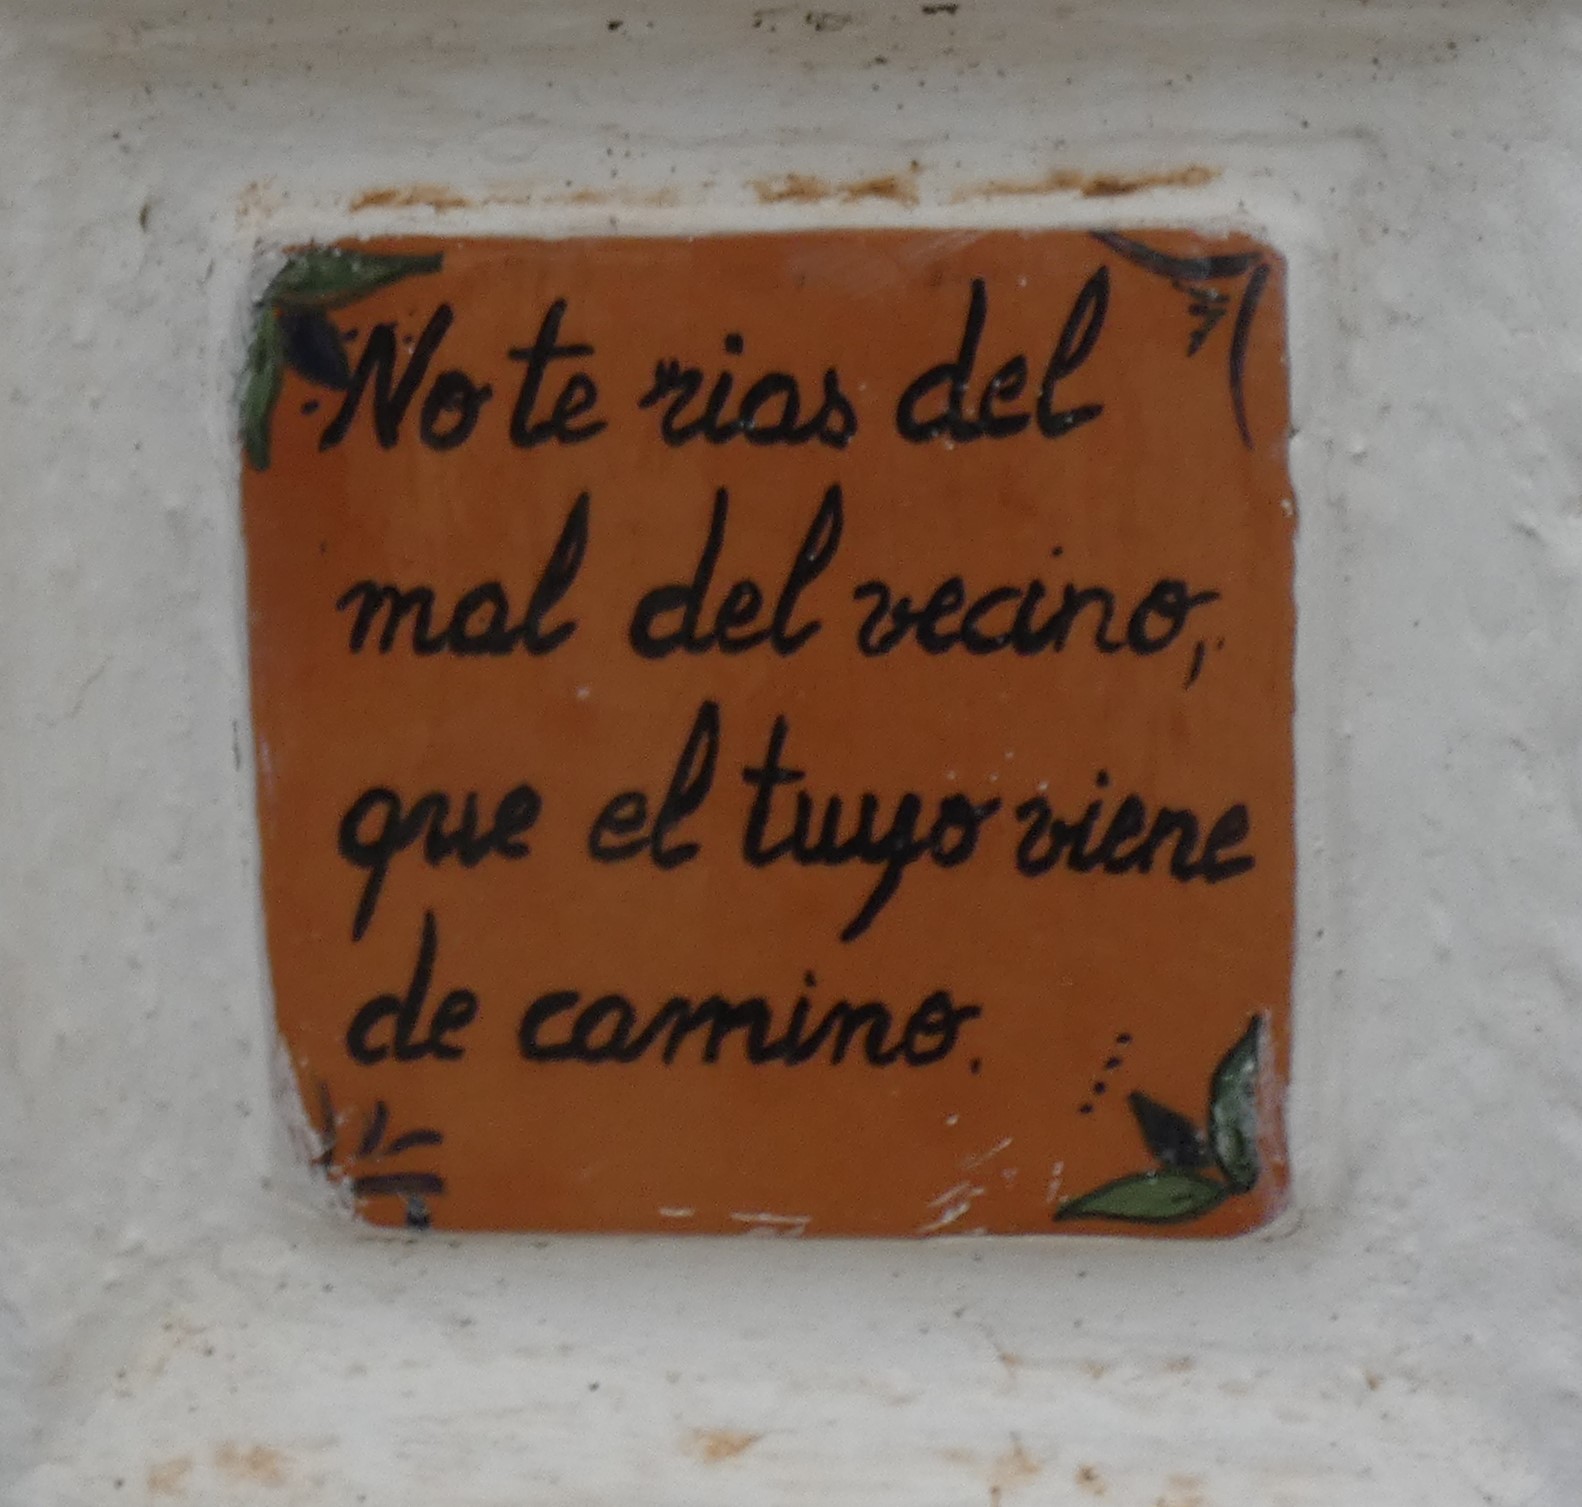 No te rias del
mal del vecino,
que el tuyo viene
de camino.